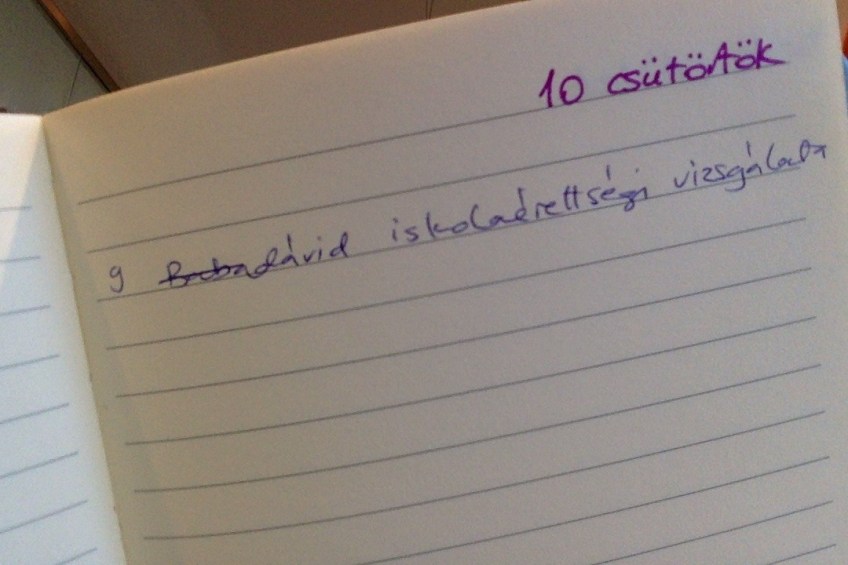 10 csütörtök
9 dávid iskolaérettségi vizsgálata